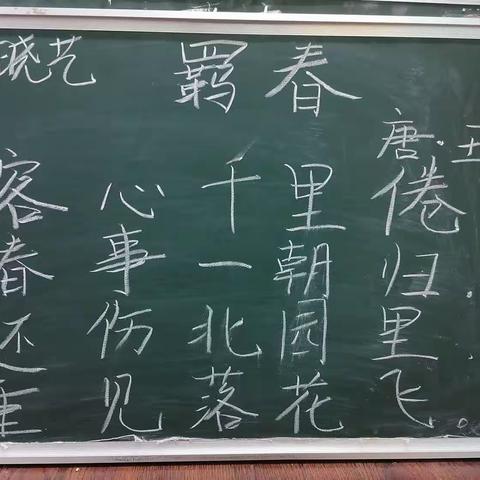 晓艺 羁春
唐·王
客心千里倦
春事一朝归.
还伤北园里.
重见落花飞。